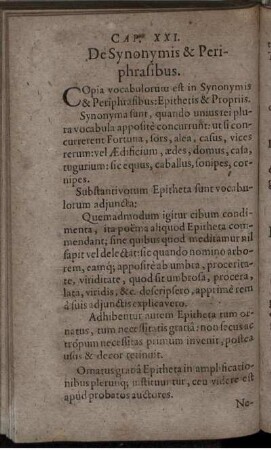 CAP. XXI.
De Synonymis & Peri-
phrasibus.
COpia vocabulorum est in Synonymis
& Periphrasibus: Epithetis & Propriis.
Synonyma sunt, quando unius rei plu-
ra vocabula appositè concurrunt: ut si con-
currerent Fortuna, sors, alea, casus, vices
rerum: vel Ædificium, ædes, domus, casa,
tugurium: sic equus, caballus, sonipes, cor-
nipes.
Substantivorum Epitheta sunt vocabu-
lorum adjuncta:
Quemadmodum igitur cibum condi-
menta, ita poëma aliquod Epitheta com-
mendant; sine quibus quod meditamur nil
sapit vel delectat: sic quando nomino arbo-
rem, eamq; appositè ab umbra, procerita-
te, viriditate, quod sit umbrosa, procera,
lata, viridis, &c. descripsero, apprimè rem
à suis adjunctis explicavero.
Adhibentur autem Epitheta tum or-
natus, tum necessitatis gratiâ: non secus ac
tropum necessitas primum invenit, postea
usus & decor retinuit.
Ornatus gratiâ Epitheta in amplificatio-
nibus plerunq; instituuntur, ceu videre est
apud probatos auctores.
No-